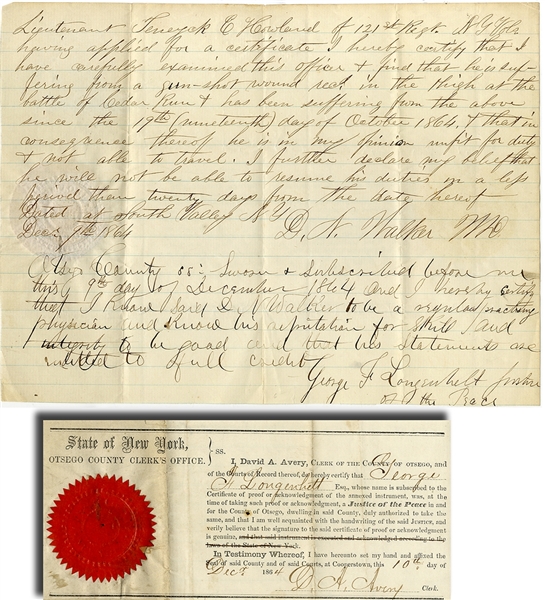 Lieutenant Teneyck C Howland of 121st Regt. N Y Vols
having applied for a certificate I hereby certify that I
have carefully examined this officer & find that he is suf-
fering from a gun-shot wound recd. in the thigh at the
battle of Cedar Run & has been suffering from the above
since the 19th (nineteenth) day of October 1864. & that in
consequence thereof he is in my opinion unfit for duty
& not able to travel. I further declare my belief that
he will not be able to resume his duties in a less
period than twenty days from the date hereof
Dated at South Valley N Y
Dec. 9th 1864 D. N. Walker MD
Otsego County ss: Sworn & Subscribed before me
this 9th day of December 1864 and I hereby certify
that I know said Dr Walker to be a regular practicing
physician and know his reputation for skill and
integrity to be good and that his statements are
entitled to full credit
George F Longenhelt Justice
of the Peace
State of New York,
OTSEGO COUNTY CLERK'S OFFICE. } ss.
I, David A. Avery, CLERK OF THE COUNTY OF OTSEGO, and
of the Courts of Record thereof, do hereby certify that George
F Longenhelt Esq., whose name is subscribed to the
Certificate of proof or acknowledgment of the annexed instrument, was, at the
time of taking such proof or acknowledgment, a Justice of the Peace in and
for the County of Otsego, dwelling in said County, duly authorized to take the
same, and that I am well acquainted with the handwriting of the said Justice, and
verily believe that the signature to the said certificate of proof or acknowledgment
is genuine, and that said instrument is executed and acknowledged according to the
laws of the State of New York.
In Testimony Whereof, I have hereunto set my hand and affixed the
seal of said County and of said Courts, at Cooperstown, this 10th day of
Decr 1864
D. A. Avery Clerk.